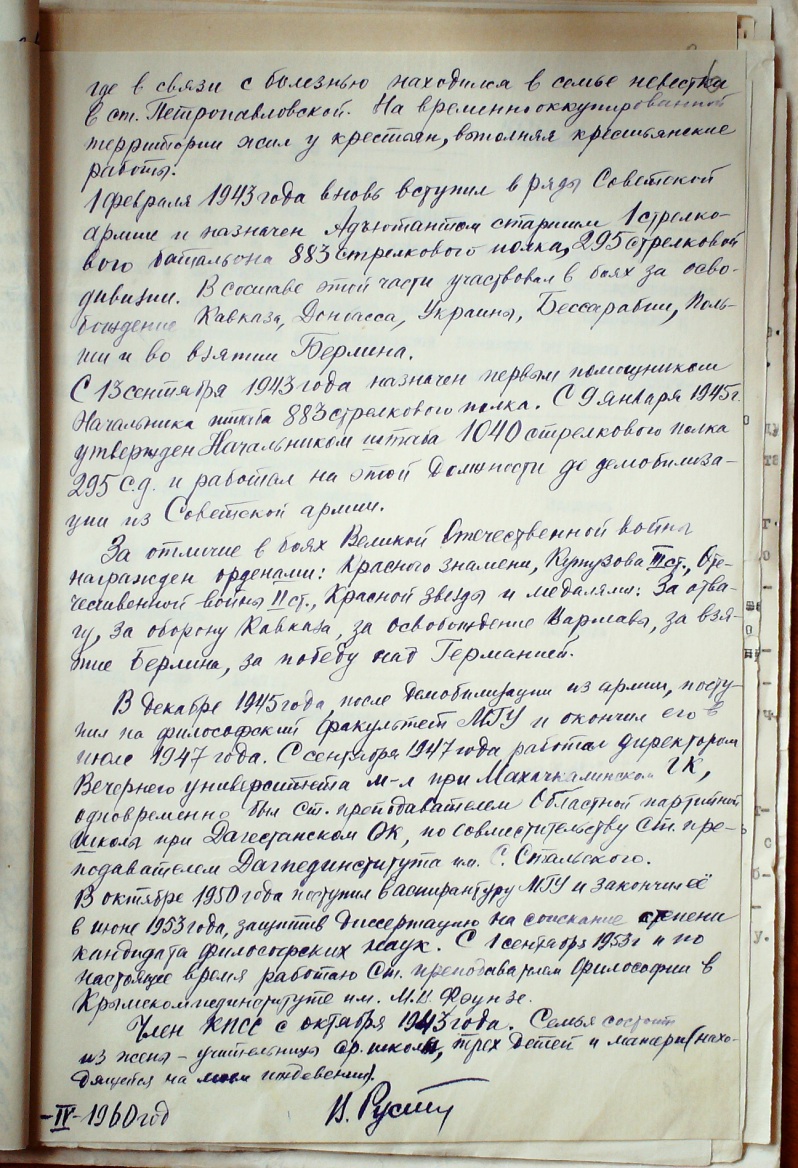 где в связи с болезнью находился в семье невестки
в ст. Петропавловской. На временно оккупированной
территории жил у крестьян, выполняя крестьянские
работы.
1 февраля 1943 года вновь вступил в ряды Советской
армии и назначен Адъютантом старшим 1 стрелко-
вого батальона 883 стрелкового полка, 295 стрелковой
дивизии. В составе этой части участвовал в боях за осво-
бождение Кавказа, Донбасса, Украины, Бессарабии, Поль-
ши и во взятии Берлина.
С 13 сентября 1943 года назначен первым помощником
Начальника штаба 883 стрелкового полка. С 9 января 1945 г.
утвержден Начальником штаба 1040 стрелкового полка
295 с.д. и работал на этой должности до демобилиза-
ции из Советской армии.
За отличие в боях Великой Отечественной войны
награжден орденами: Красного знамени, Кутузова III ст., Оте-
чественной войны II ст., Красной звезды и медалями: За отва-
гу, за оборону Кавказа, за освобождение Варшавы, за взя-
тие Берлина, за победу над Германией.
В декабре 1945 года, после демобилизации из армии, посту-
пил на философский факультет МГУ и окончил его в
июле 1947 года. С сентября 1947 года работал директором
Вечернего университета м-л при Махачкалинском ГК,
одновременно был ст. преподавателем Областной партийной
школы при Дагестанском ОК, по совместительству Ст. пре-
подавателем Дагпединститута им. С. Стальского.
В октябре 1950 года поступил в аспирантуру МГУ и закончил её
в июне 1953 года, защитив диссертацию на соискание степени
кандидата философских наук. С 1 сентября 1953 г и по
настоящее время работаю Ст. преподавателем философии в
Крымском пединституте им. М.В. Фрунзе.
Член КПСС с октября 1943 года. Семья состоит
из жены – учительницы ср. школы, трех детей и матери (нахо-
дящейся на моем иждевении).
-IV- 1960 год